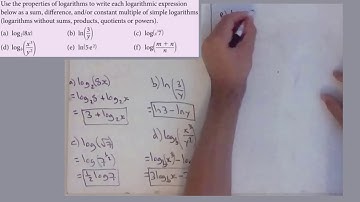 Use the properties of logarithms to write each logarithmic expression
below as a sum, difference, and/or constant multiple of simple logarithms
(logarithms without sums, products, quotients or powers).
(a) log₂(8x) (b) ln(3/y) (c) log(√7)
(d) (e) ln(5e²) (f) log((m + n)/n)
a) log₂(8x)
= log₂8 + log₂x
= 3 + log₂x
b) ln(3/y)
= ln3 - lny
c) log(√7)
= log(7^½)
= ½ log7
d)